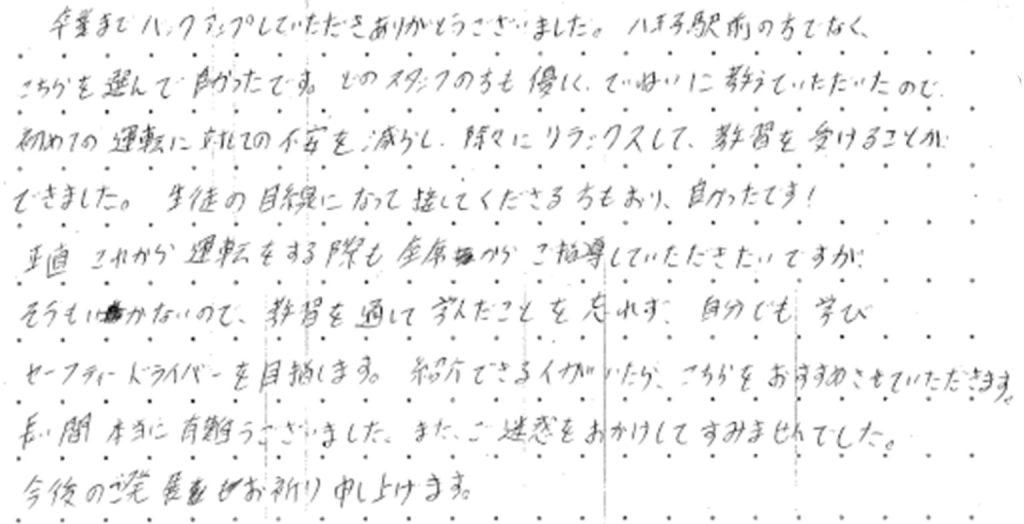 卒業までバックアップしていただきありがとうございました。八王子駅前の方でなく、
こちらを選んで良かったです。どのスタッフの方も優しく、ていねいに教えていただいたので
初めての運転に対しての不安を減らし、除々にリラックスして、教習を受けることが
できました。生徒の目線になって接してくださる方もおり、良かったです!
正直これから運転をする際も座席からご指導していただきたいですが、
そうもいかないので、教習を通して学んだことを忘れず、自分でも学び
セーフティードライバーを目指します。紹介できる人がいたら、こちらをおすすめさせていただきます。
長い間本当に有難うございました。また、ご迷惑をおかけしてすみませんでした。
今後のご発展をお祈り申し上げます。